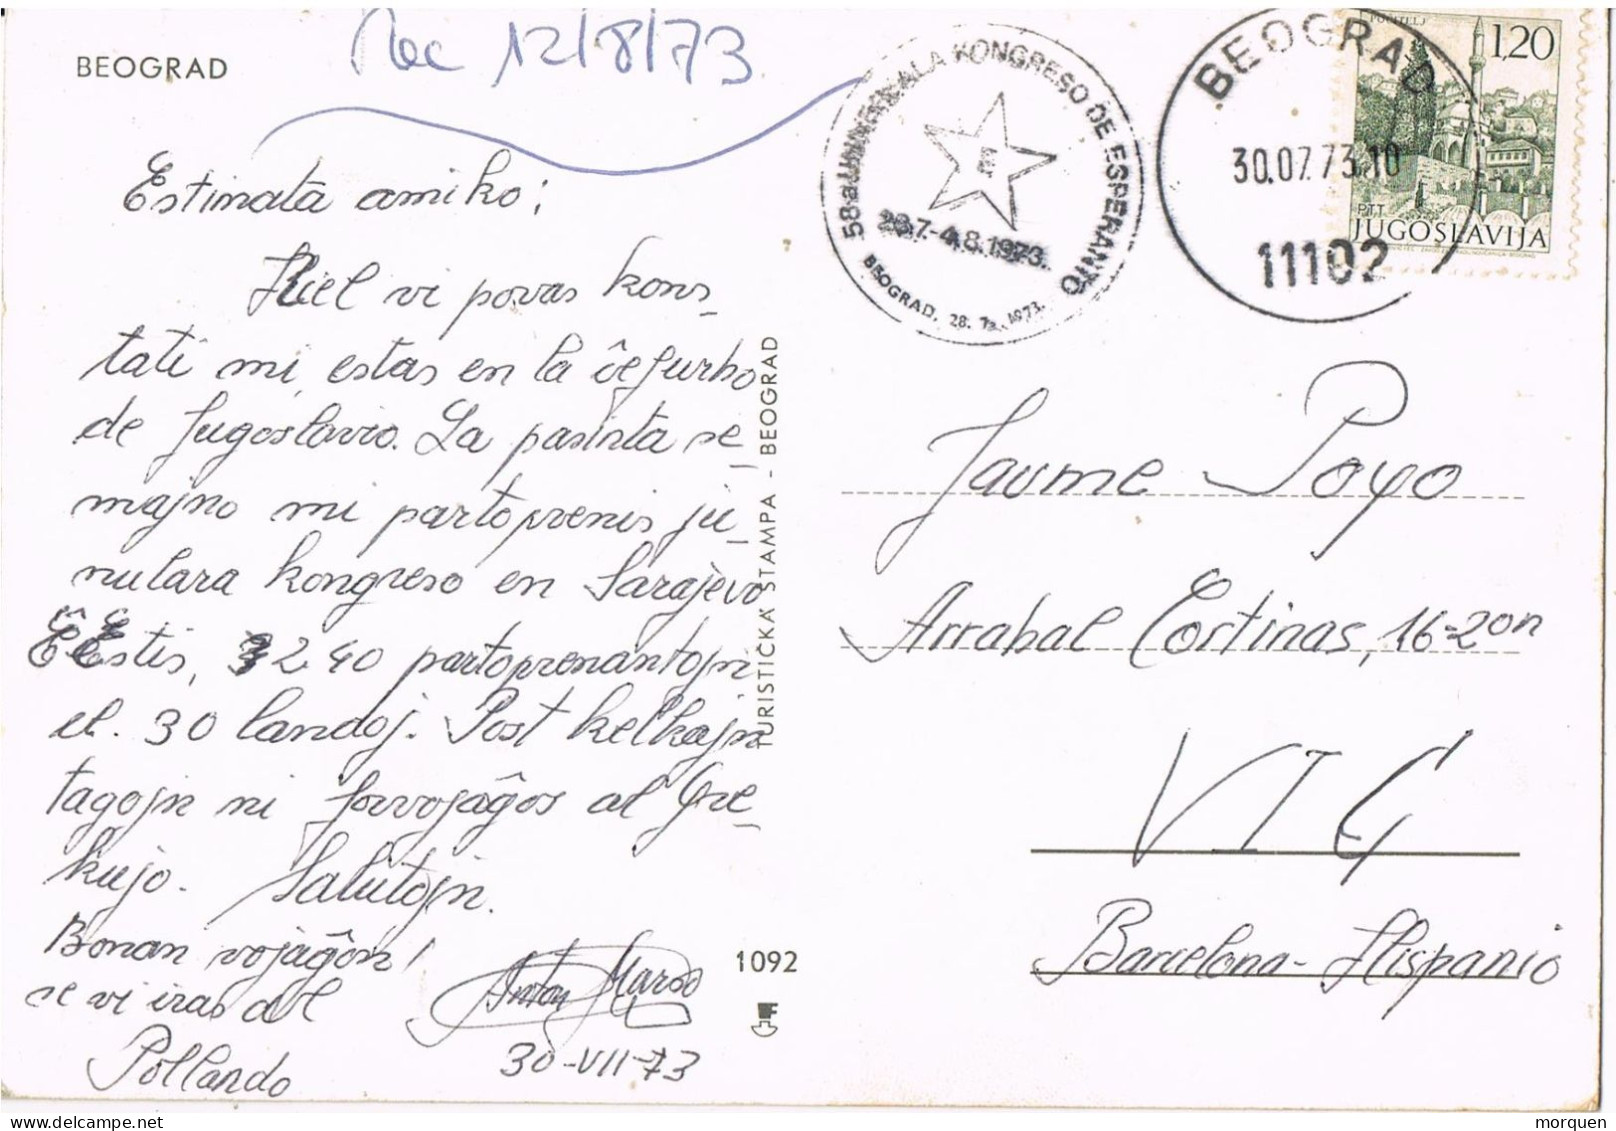 BEOGRAD
Rec 12/8/73
Estimata amiko;
Kiel vi povas kons-
tati mi estas en la ĉefurbo
de Jugoslavio. La pasinta se-
majno mi partoprenis ju-
nulara kongreso en Sarajevo
Ĉ Estis, 240 partoprenantojn
el 30 landoj. Post kelkajn
tagojn ni forvojaĝos al Gre-
kujo. Salutojn.
Bonan vojaĝon!
se vi iras al
Pollando
30-VII-73
TURISTIČKA ŠTAMPA - BEOGRAD
1092
58-a UNIVERSALA KONGRESO DE ESPERANTO
28.7.-4.8.1973.
BEOGRAD, 28. 7. 1973.
BEOGRAD
30.07.73.10
11102
POČITELJ
1,20
PTT
JUGOSLAVIJA
Jaume Poyo
Arrabal Cortinas, 16-2on
VIC
Barcelona - Hispanio
morquen